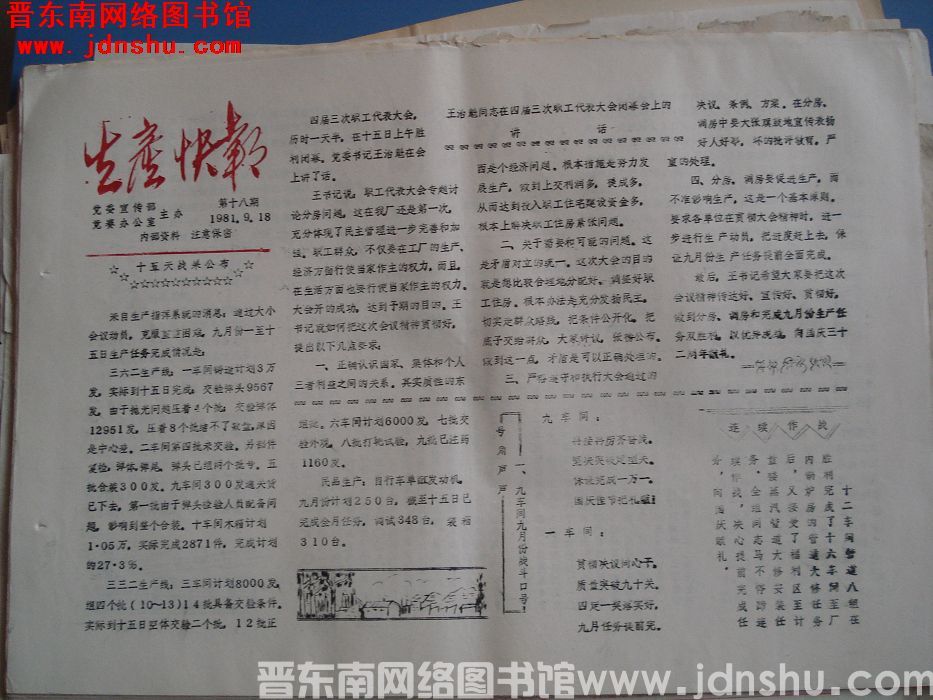 晋东南网络图书馆
www.jdnshu.com
生产快报
党委宣传部
党委办公室
主办
第十八期
1981.9.18
内部资料 注意保密
十五天战果公布
来自生产指挥系统的消息,通过大小
会议动员,克服重重困难,九月份一至十
五日生产任务完成情况是:
三六二生产线:一车间铸造计划3万
发,实际到十五日完成:交检弹头9567
发,由于抛光问题压着8个批,交检弹体
12951发,压着8个批结不了数量,原因
是中心差。二车间第四批未交检,另部件
复检,弹体,弹尾,弹头已组两个批号。五
批合装300发。九车间300发返夫货
已下去,第一批由于弹头检验人员配备问
题,影响到整个合装。十车间木箱计划
1·05万,实际完成2871件,完成计划
的27·3%。
三三二生产线:三车间计划8000发,
组四个批(10—13)14批具备交检条件,
实际到十五日空体交验二个批,12批正
四届三次职工代表大会,
历时一天半,在十五日上午胜
利闭幕。党委书记王治魁在会
上讲了话。
王书记说:职工代表大会专题讨
论分房问题,这在我厂还是第一次,
充分体现了民主管理进一步完善和加
强。职工群众,不仅要在工厂的生产、
经济方面行使当家作主的权力,而且,
在生活方面也要行使当家作主的权力。
大会开的成功,达到予期的目的。王
书记就如何把这次会议精神贯彻好,
提出以下几点要求:
一、正确认识国家、集体和个人
三者利益之间的关系。其实质性的东
王治魁同志在四届三次职工代表大会闭幕会上的
讲话
西是个经济问题。根本措施是努力发
展生产,做到上交利润多,提成多,
从而达到投入职工住宅建设资金多,
根本上解决职工住房紧张问题。
二、关于需要和可能的问题。这
是矛盾对立的统一。这次大会的目的
就是想比较合理地分配好、调整好职
工住房。根本办法是充分发扬民主,
切实走群众路线,把条件公开化,把
底子交给群众,大家评议,张榜公布。
做到这一点,矛盾是可以正确处理的。
三、严格遵守和执行大会通过的
决议、条例、方案。在分房、
调房中要大张旗鼓地宣传表扬
好人好事,坏的批评教育,严
重的处理。
四、分房、调房要促进生产,而
不准影响生产。这是一个基本原则。
要求各单位在贯彻大会精神时,进一
步进行生产动员,把进度赶上去,保
证九月份生产任务提前全面完成。
最后,王书记希望大家要把这次
会议精神传达好、宣传好、贯彻好,
做到分房、调房和完成九月份生产任
务双胜利,以优异成绩,向国庆三十
二周年献礼。
组批。六车间计划6000发,七批交
检外观,八批打靶试验,九批已注药
1160发。
民品生产:自行车单缸发动机,
九月份计划250台,截至十五日已
完成全月任务,调试348台,装箱
310台。
号角声声
一、九车间九月份战斗口号:
九车间:
再接再厉齐奋战,
坚决突破尾翅关。
体砲完成一万一,
国庆佳节把礼献!
一车间:
贯彻决议同心干,
质量突破九十关,
四定一奖落实好,
九月任务提前完。
连续作战
晋东南网络图书馆www.jdnshu.com